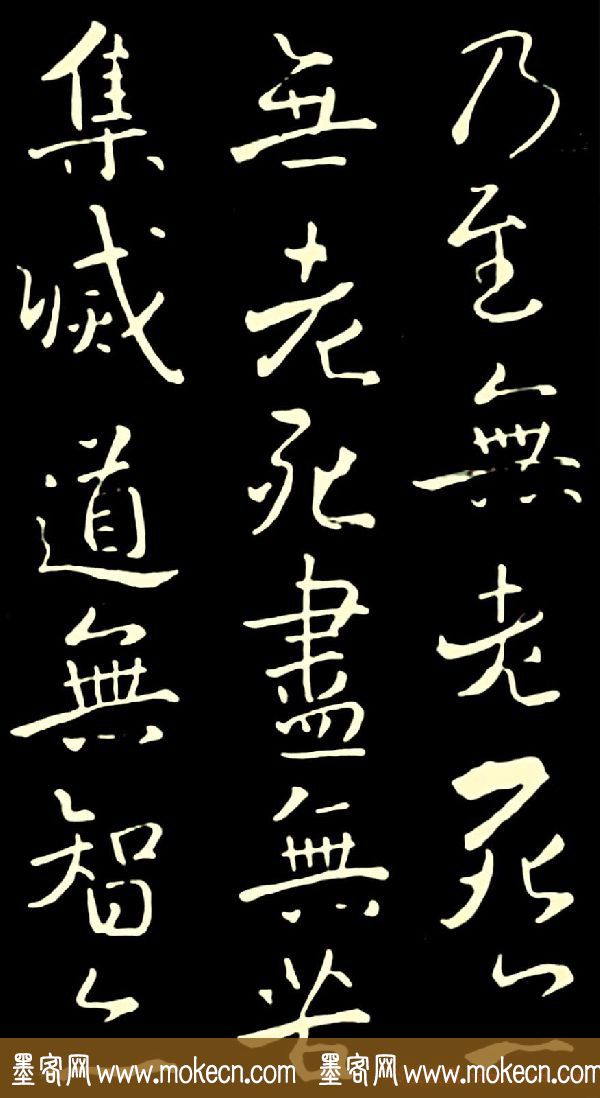 乃至無老死
無老死盡無苦
集滅道無智
墨客网 www.mokecn.com 墨客网 www.mokecn.com